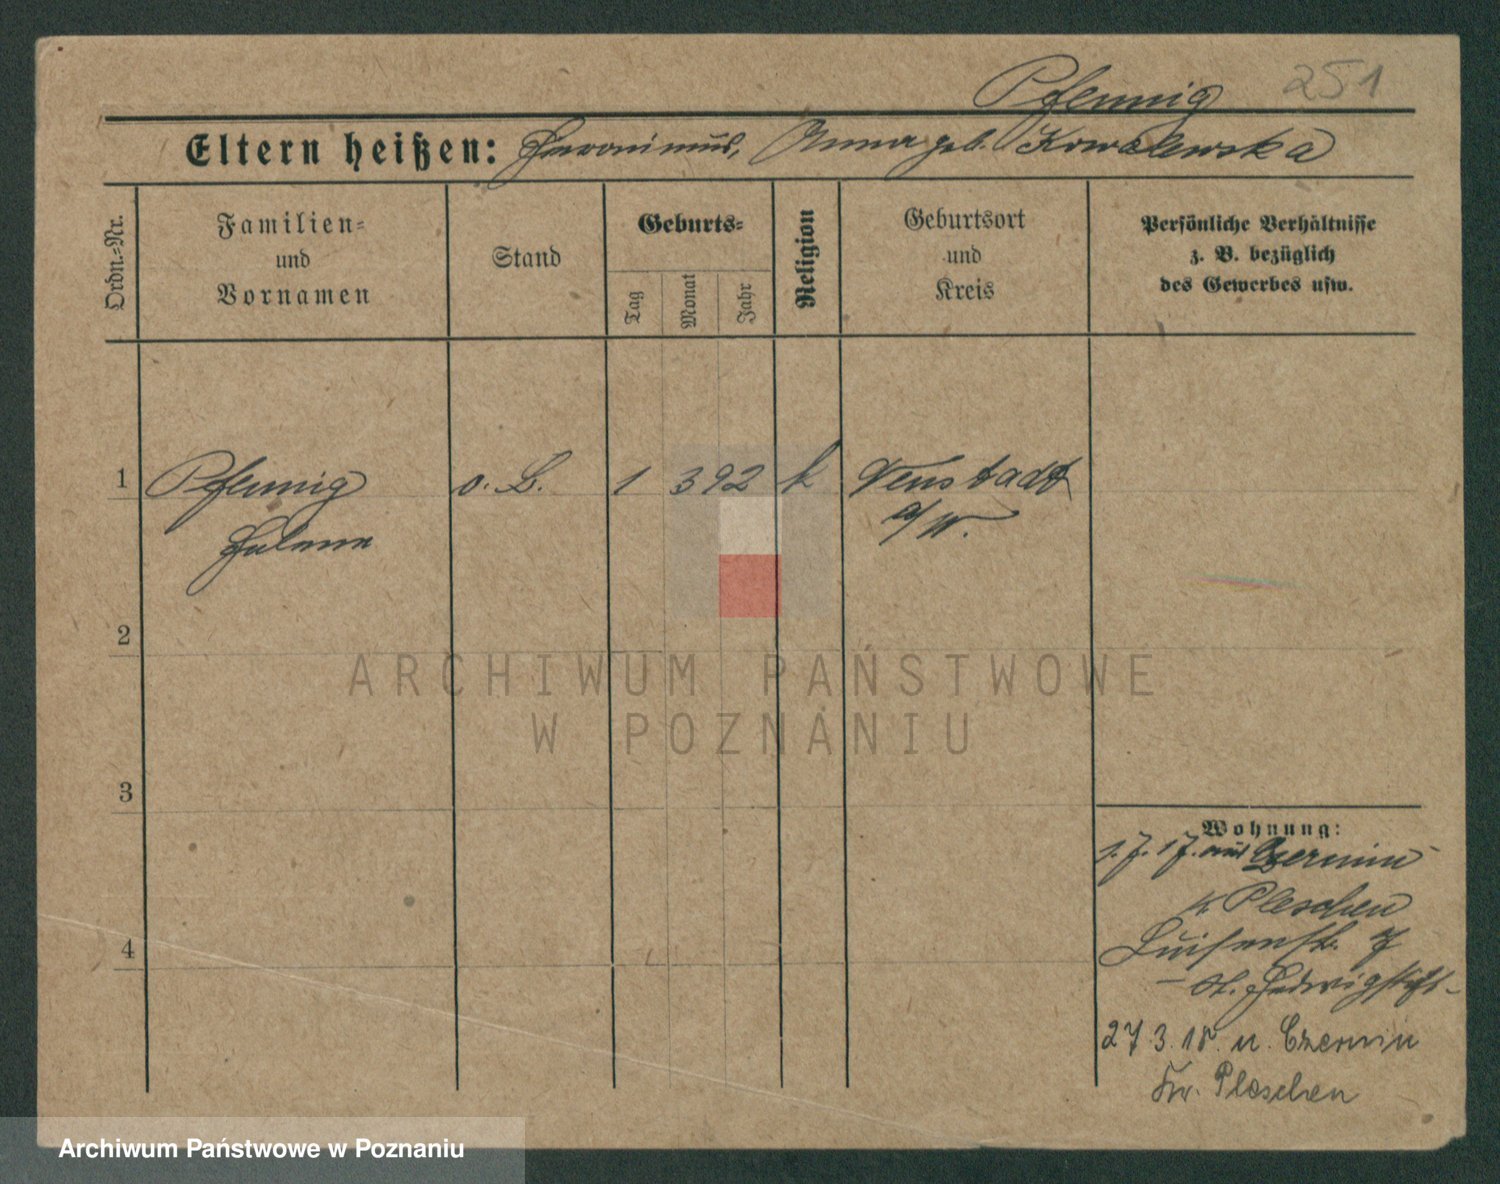 Pfennig 251
Eltern heißen: Hieronimus, Anna geb. Kowalewska
Ordn.-Nr.
Familien-
und
Vornamen
Stand
Geburts-
Tag
Monat
Jahr
Religion
Geburtsort
und
Kreis
Persönliche Verhältnisse
z. B. bezüglich
des Gewerbes usw.
1 Pfennig o. B. 1 3 92 k Neustadt
Helene a/W.
2
ARCHIWUM PAŃSTWOWE
W POZNANIU
3
Wohnung:
1.7.17. aus Czermin
Kr Pleschen
4
Luisenstr. 7
– St. Hedwigstift –
27.3.18. n. Czermin
Kr. Pleschen
Archiwum Państwowe w Poznaniu